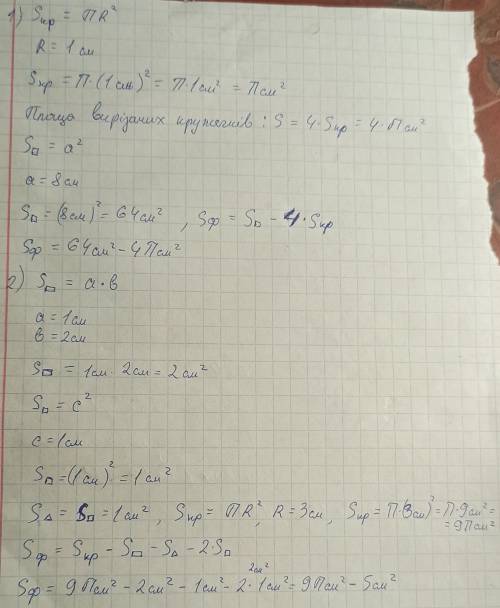 1) Sкр = ПR²
R = 1 см
Sкр = П·(1см)² = П·1см² = Псм²
Площа вирізаних кружечків: S = 4·Sкр = 4·Псм²
S□ = a²
a = 8см
S□ = (8см)² = 64см², Sф = S□ - 4·Sкр
Sф = 64см² - 4Псм²
2) S▭ = a·в
a = 1см
в = 2см
S▭ = 1см·2см = 2см²
S□ = c²
c = 1см
S□ = (1см)² = 1см²
S△ = S□ = 1см², Sкр = ПR², R = 3см, Sкр = П·(3см)² = П·9см² =
= 9Псм²
Sф = Sкр - S▭ - S△ - 2·S□
2см²
Sф = 9Псм² - 2см² - 1см² - 2·1см² = 9Псм² - 5см²